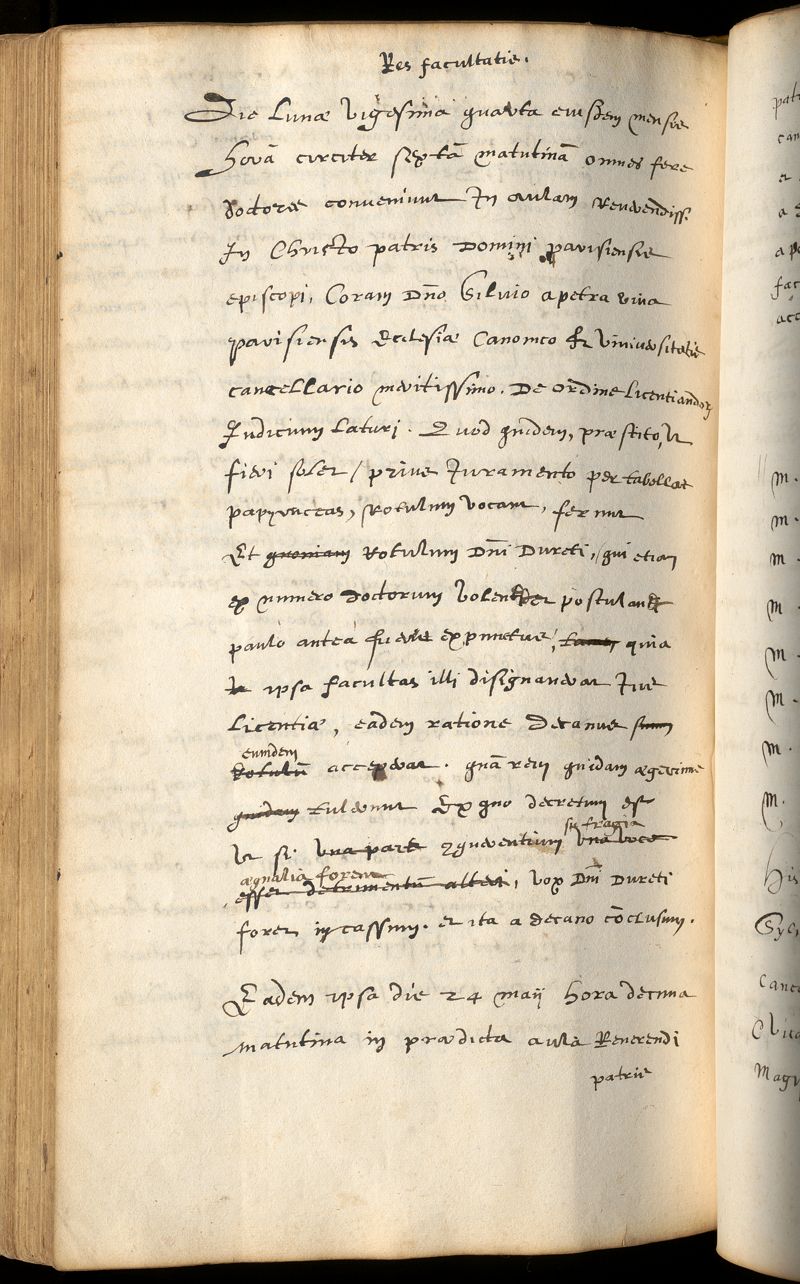 Res facultatis.
Die Lunæ vigesima quarta eiusdem mensis
horâ circiter sextâ matutinâ omnes fere
doctores conveniunt In aulam Reverendiss.
In Christo patris Domini parisiensis
episcopi, Coram Dno Silvio a petra viva
parisiensis Ecclesiæ Canonico & Universitatis
cancellario meritissimo. De ordine Licentiandorum
Iudicium laturi. Quod quidem, præstito, ut
fieri solet / prius Iuramento per tabellas
papyraceas, Rotulum vocant, fertur
Et quoniam Rotulum Dni Dureti, qui etiam
ex numero doctorum postulan
paulo antea fu expunctus, tamen quia
ipsa facultas illi disignaverat Ius
Licentiæ, eadem ratione Decanus suum
eumdem
Rotulū acceperat. quam rem quidam ægerrime
quidam tulerunt Ex quo decretum est
suffragia
Ut si una pars 2querentium una voce
æqualia forent
esset detrimentū alteri, vox Dni Dureti
foret in cassum. et ita a decano cōclusum.
Eadem ipsa die 24 maij hora decima
matutina in prædicta aula Reverendi
patris
patr
can
et
a
a pe
fac
acc
M.
M.
M.
M.
M.
M.
M.
M.
His
Syl
Canc
Magi